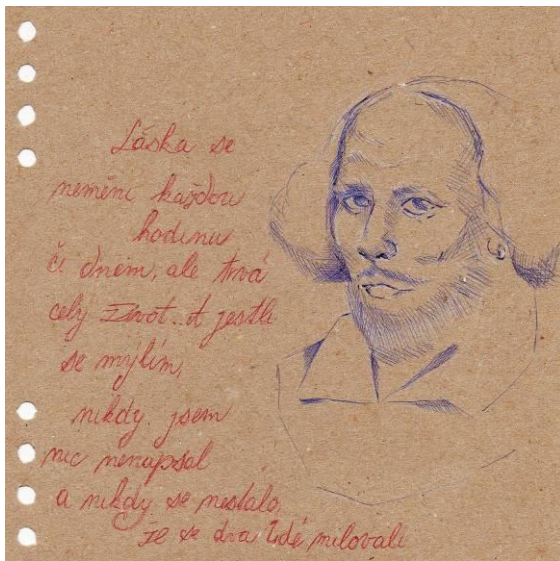 Láska se
nemění každou
hodinu
či dnem, ale trvá
celý život.. A jestli
se mýlím,
nikdy jsem
nic nenapsal
a nikdy se nestalo,
že se dva lidé milovali